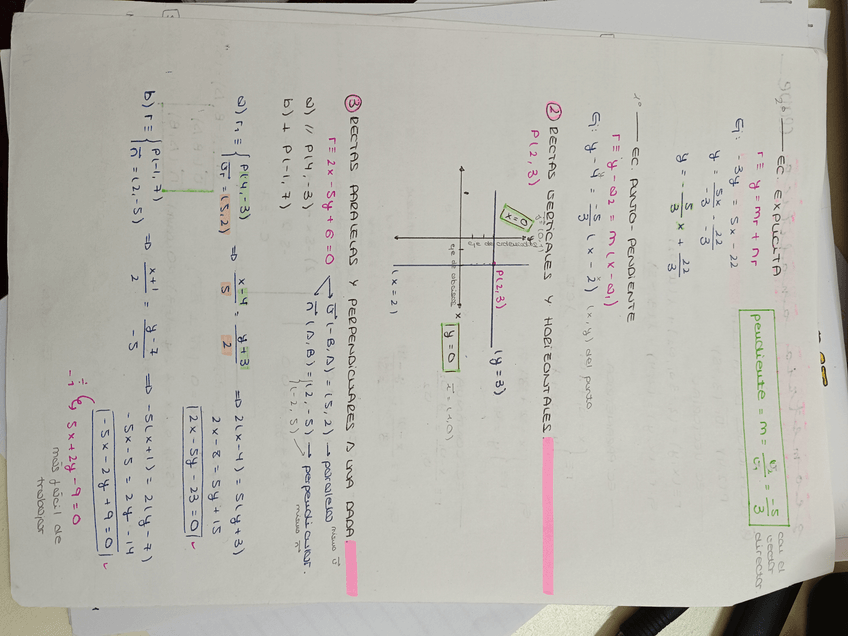 EC. EXPLÍCITA
r ≡ y = mx + n
Ej: -3y = 5x - 22
y = 5x/-3 - 22/-3
y = -5/3 x + 22/3
pendiente = m = v₂/v₁ = -5/3
con el vector director
EC. PUNTO-PENDIENTE
r ≡ y - a₂ = m (x - a₁)
Ej: y - 4 = -5/3 (x - 2) (x,y) del punto
② RECTAS VERTICALES Y HORIZONTALES
P(2,3)
x=0
eje de ordenadas
P(2,3)
(y=3)
eje de abscisas
x
y=0
(x=2)
③ RECTAS PARALELAS Y PERPENDICULARES A UNA DADA
r ≡ 2x - 5y + 6 = 0
v⃗ (-B, A) = (5,2) → paralela mismo v⃗
n⃗ (A,B) = (2,-5) → perpendicular. mismo n⃗
(-2,5)
a) // P(4,-3)
b) ⊥ P(-1,7)
a) r₁ ≡ { P(4,-3)
v⃗r = (5,2)
⇒ x-4/5 = y+3/2 ⇒ 2(x-4) = 5(y+3)
2x - 8 = 5y + 15
2x - 5y - 23 = 0
b) r ≡ { P(-1,7)
n⃗ = (2,-5)
⇒ x+1/2 = y-7/-5 ⇒ -5(x+1) = 2(y-7)
-5x - 5 = 2y - 14
-5x - 2y + 9 = 0
÷ -1
5x + 2y - 9 = 0
más fácil de trabajar